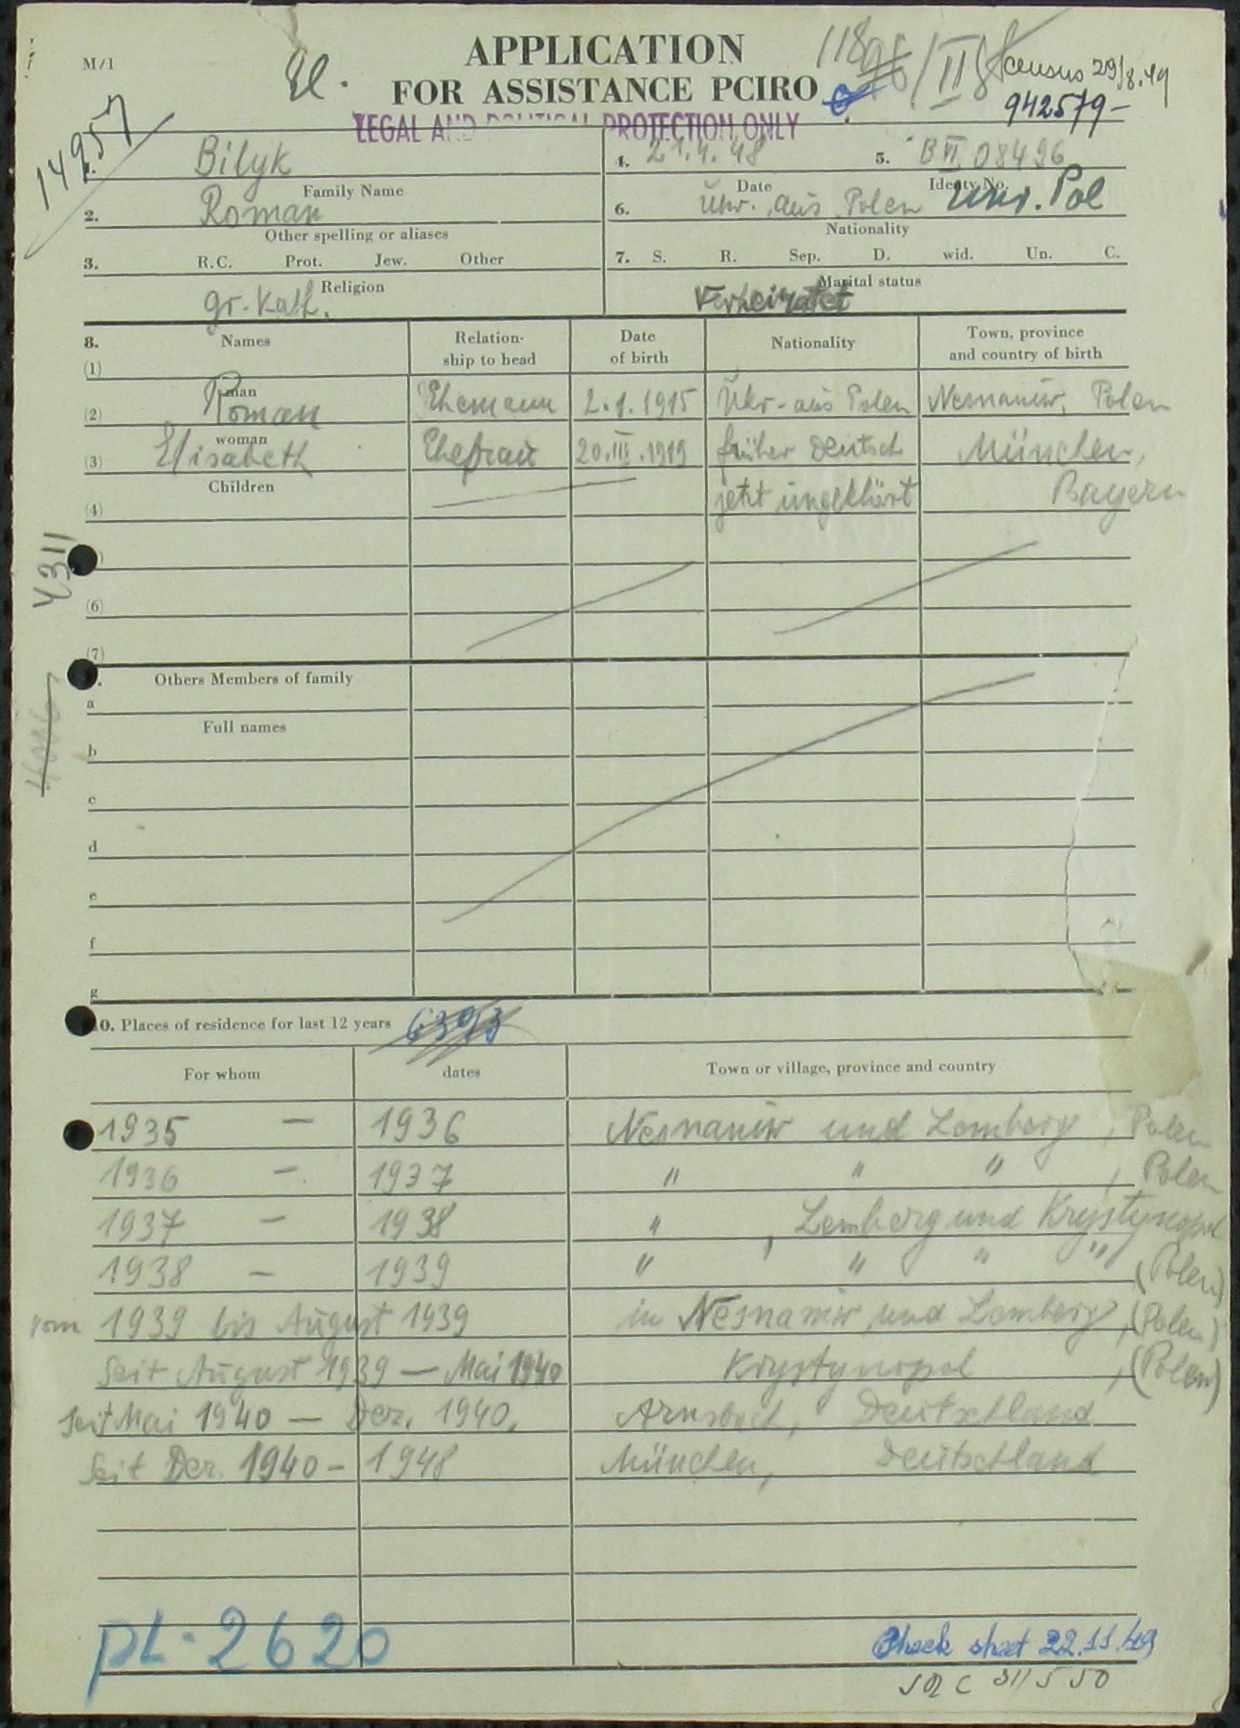 M/1
APPLICATION
FOR ASSISTANCE PCIRO
LEGAL AND POLITICAL PROTECTION ONLY
118
/II/
census 29/8.49
942579-
14957
1. Bilyk
Family Name
4. 21.4.48
Date
5. BVI 08496
Identy No.
2. Roman
Other spelling or aliases
6. Ukr. aus Polen Ukr. Pol
Nationality
3. R.C. Prot. Jew. Other
Religion
gr.-kath.
7. S. R. Sep. D. wid. Un. C.
Marital status
Verheiratet
8. Names Relation-ship to head Date of birth Nationality Town, province and country of birth
(1)
man
(2) Roman Ehemann 2.1.1915 Ukr-aus Polen Nesnaniw, Polen
woman
(3) Elisabeth Ehefrau 20.III.1919 früher Deutsch München,
Children
(4) jetzt ungeklärt Bayern
4311
(6)
(7)
Others Members of family
a
Full names
b
c
d
e
f
g
10. Places of residence for last 12 years 6393
For whom dates Town or village, province and country
1935 — 1936 Nesnaniw und Lemberg, Polen
1936 — 1937 " " ", Polen
1937 — 1938 ", Lemberg und Krystynopol
1938 — 1939 " " " " (Polen)
vom 1939 bis August 1939 in Nesnaniw und Lemberg, (Polen)
Seit August 1939 — Mai 1940 Krystynopol, (Polen)
seit Mai 1940 — Dez. 1940, Deutschland
Seit Dez. 1940 - 1948 München, Deutschland
PL-2620
Check sheet 22.11.49